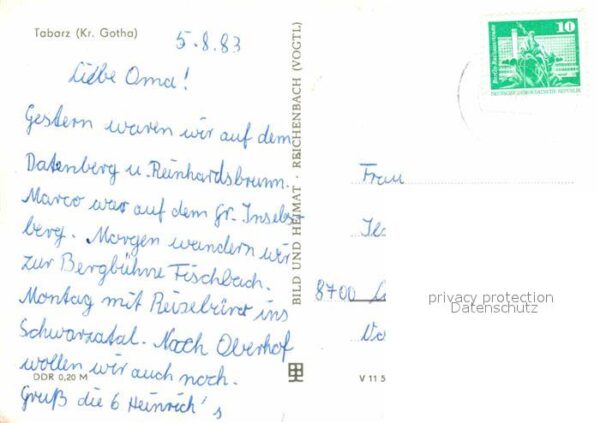 Tabarz (Kr. Gotha)
5.8.83
Liebe Oma!
Gestern waren wir auf dem
Datenberg u. Reinhardsbrunn.
Marco war auf dem gr. Insels-
berg. Morgen wandern wir
zur Bergbühne Fischbach.
Montag mit Reisebüro ins
Schwarzatal. Nach Oberhof
wollen wir auch noch.
DDR 0,20 M
Gruß die 6 Heinrich's
BILD UND HEIMAT · REICHENBACH (VOGTL)
V 11 5
10
DEUTSCHE DEMOKRATISCHE REPUBLIK
Frau
8700
privacy protection
Datenschutz